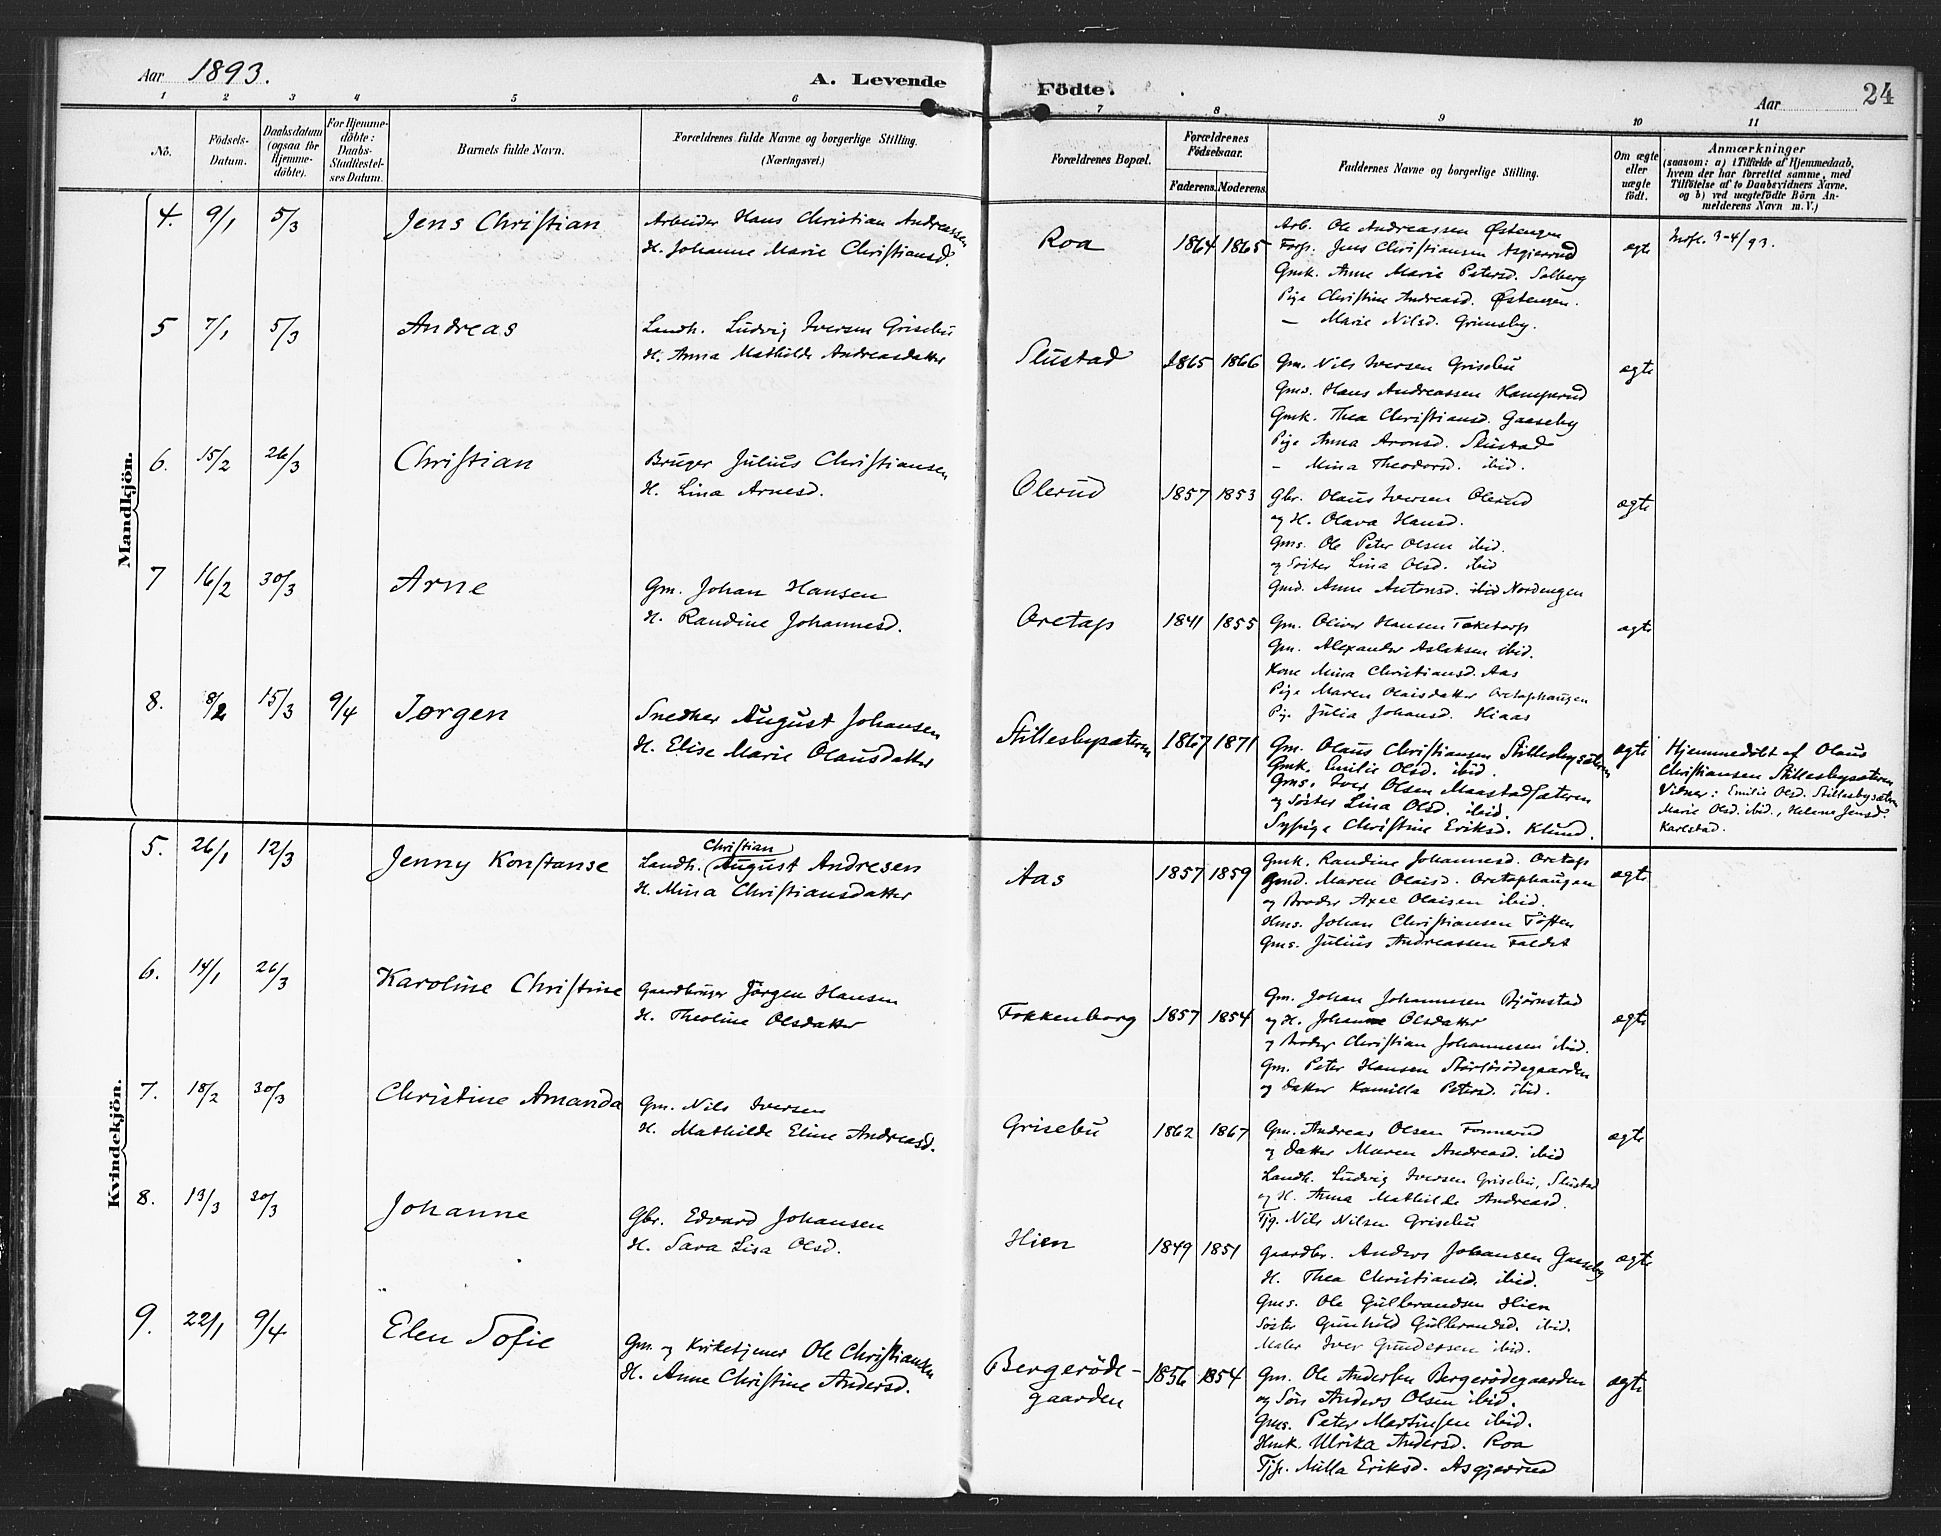 Aar 1893.
A. Levende Födte.
Aar
24
1 2 3 4 5 6 7 8 9 10 11
No.
Födsels-Datum.
Daabsdatum (ogsaa for Hjemme-döbte).
For Hjemme-döbte: Daabs-Stadfæstel-ses Datum.
Barnets fulde Navn.
Forældrenes fulde Navne og borgerlige Stilling.
(Næringsvei.)
Forældrenes Bopæl.
Forældrenes Födselsaar.
Faderens. Moderens.
Faddernes Navne og borgerlige Stilling.
Om ægte eller uægte födt.
Anmærkninger
(saasom: a) i Tilfælde af Hjemmedaab,
hvem der har forrettet samme, med
Tilföielse af to Daabsvidners Navne,
og b) ved uægtefödte Börn An-
melderens Navn m. V.)
Mandkjön.
4. 9/1 5/3 Jens Christian
Arbeider Hans Christian Andreassen
H. Johanne Marie Christiansd.
Roa 1864 1865
Arb. Ole Andreassen Østengen
Forp. Jens Christiansen Asgjerrud
Gmk. Anne Marie Petersd. Solberg
Pige Christine Andreasd. Østengen.
— Marie Nilsd. Grimsby.
ægte
3-4/93.
5 7/1 5/3 Andreas
Landh. Ludvig Iversen Grisebu
H. Anna Mathilde Andreasdatter
Slustad 1865 1866
Gm. Nils Iversen Grisebu
Gms. Hans Andreassen Kamperud
Gmk. Thea Christiansd. Gaaseby
Pige Anna Aronsd. Slustad
— Mina Theodorsd. ibid.
ægte
6. 15/2 26/3 Christian
Bruger Julius Christiansen
H. Lina Arnesd.
Olerud 1857 1853
Gbr. Olaus Iversen Olerud
og H. Olava Hansd.
Gms. Ole Peter Olsen ibid.
og Søster Lina Olsd. ibid
Gmd. Anne Antonsd. ibid Nordengen
ægte
7 16/2 30/3 Arne
Gm. Johan Hansen
H. Randine Johannesd.
Oretap 1841 1855
Gm. Oliver Hansen Taketorp
Gm. Alexander Aslaksen ibid.
Kone Mina Christiansd. Aas
Pige Maren Olaisdatter Oretaphaugen
Pige Julia Johansd. Hiaas
ægte
8. 8/2 15/3 9/4 Jørgen
Snedker August Johansen
H. Elise Marie Olausdatter
Stillesbysæteren 1867 1871
Gm. Olaus Christiansen Stillesbysæteren
Gmk. Emilie Olsd. ibid.
Gms. Iver Olsen Maastadsæteren
og Søster Lina Olsd. ibid.
Sypige Christine Eriksd. Klund.
ægte
Hjemmedøbt af Olaus
Christiansen Stillesbysæteren
Vidner: Emilie Olsd. Stillesbysætren
Marie Olsd. ibid., Helene Jensd.
Karlstad.
Kvindekjön.
5. 26/1 12/3 Jenny Konstanse
Christian
Landh. (August Andresen
H. Mina Christiansdatter
Aas 1857 1859
Gmk. Randine Johannesd. Oretap
Gmd. Maren Olaisd. Oretaphaugen
og Broder Axel Olaisen ibid.
Hms. Johan Christiansen Toften
Gms. Julius Andreassen Faldet
ægte
6. 14/1 26/3 Karoline Christine
Gaardbruger Jørgen Hansen
H. Theoline Olsdatter
Fokkenborg 1857 1854
Gm. Johan Johannesen Bjørnstad
og H. Johanne Olsdatter
og Broder Christian Johannesen ibid.
Gm. Peter Hansen Størlsrødegaarden
og Datter Kamilla Petersd. ibid.
ægte
7. 18/2 30/3 Christine Amanda
Gm. Nils Iversen
H. Mathilde Eline Andreasd.
Grisebu 1862 1867
Gm. Andreas Olsen Fonnerud
og Datter Maren Andreasd. ibid
Landh. Ludvig Iversen Grisebu, Slustad
og H. Anna Mathilde Andreasd.
Tjg. Nils Nilsen Grisebu
ægte
8. 13/3 30/3 Johanne
Gbr. Edvard Johansen
H. Sara Lisa Olsd.
Hien 1849 1851
Gaardbr. Anders Johansen Gaaseby
H. Thea Christiansd. ibid.
Gms. Ole Gulbrandsen Hien
Søster Gunhild Gulbrandsd. ibid.
Maler Iver Gundersen ibid.
ægte
9. 22/1 9/4 Elen Sofie
Gm. og Kirketjener Ole Christiansen
H. Anne Christine Andersd.
Bergerøde-
gaarden
1856 1854
Gm. Ole Andersen Bergerødegaarden
og Søn Anders Olsen ibid.
Gms. Peter Martinsen ibid.
Hmk. Ulrika Andersd. Roa
Tjp. Milla Eriksd. Asgjerrud
ægte